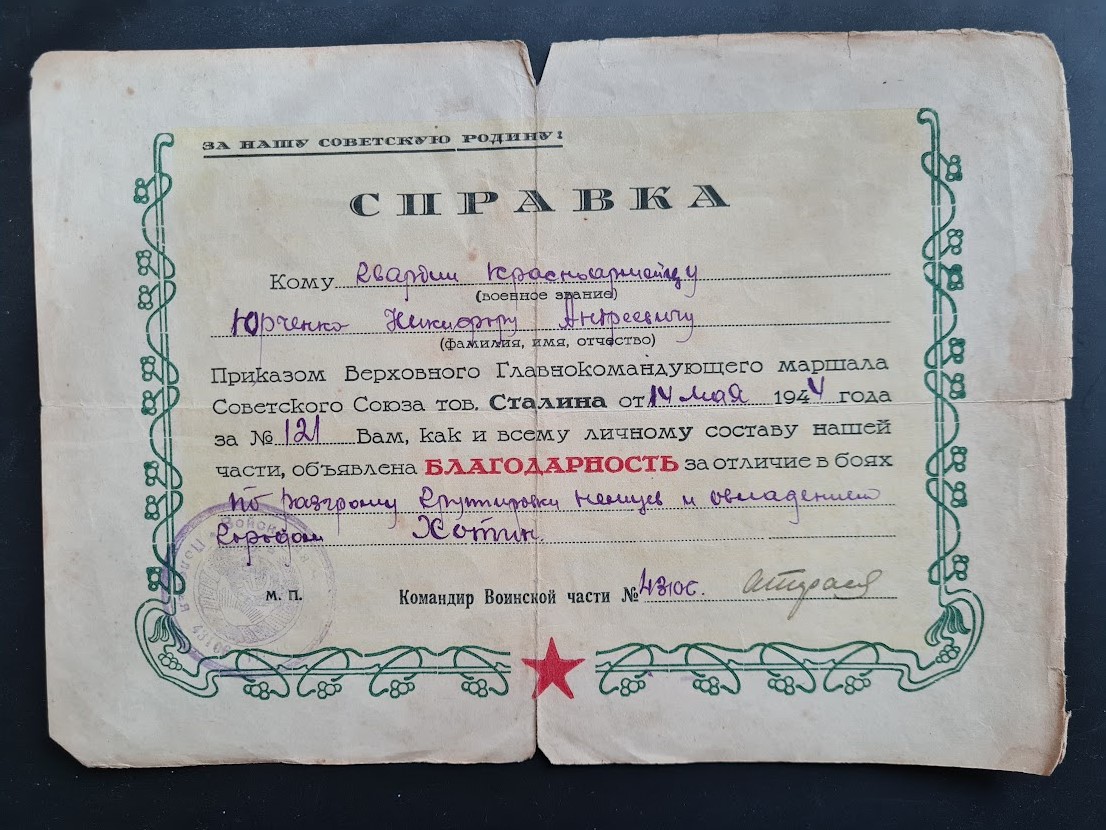 ЗА НАШУ СОВЕТСКУЮ РОДИНУ!
СПРАВКА
Кому гвардии красноармейцу
(военное звание)
Юрченко Никифору Андреевичу
(фамилия, имя, отчество)
Приказом Верховного Главнокомандующего маршала
Советского Союза тов. Сталина от 14 мая 1944 года
за № 121 Вам, как и всему личному составу нашей
части, объявлена БЛАГОДАРНОСТЬ за отличие в боях
по разгрому группировки немцев и овладением
городом Хотин
М. П. Командир Воинской части №